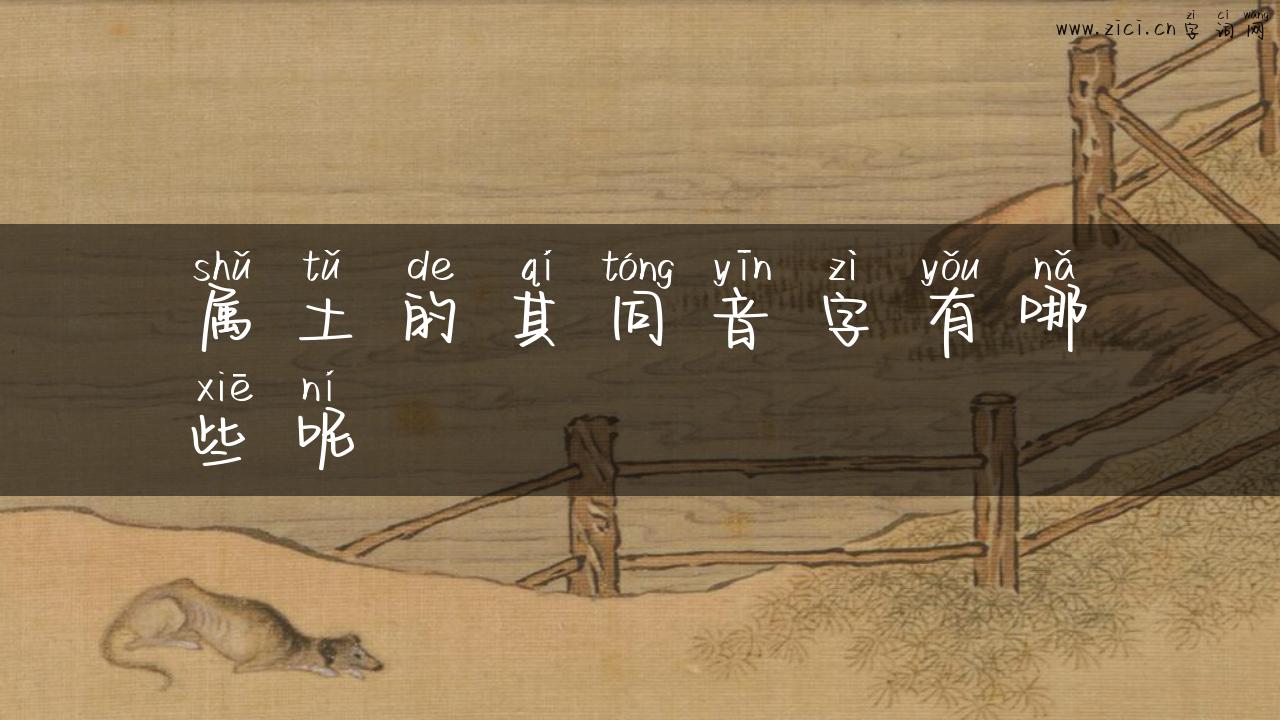 zì cí wǎng
www.zici.cn字词网
shǔ tǔ de qí tóng yīn zì yǒu nǎ
属土的其同音字有哪
xiē ní
些呢